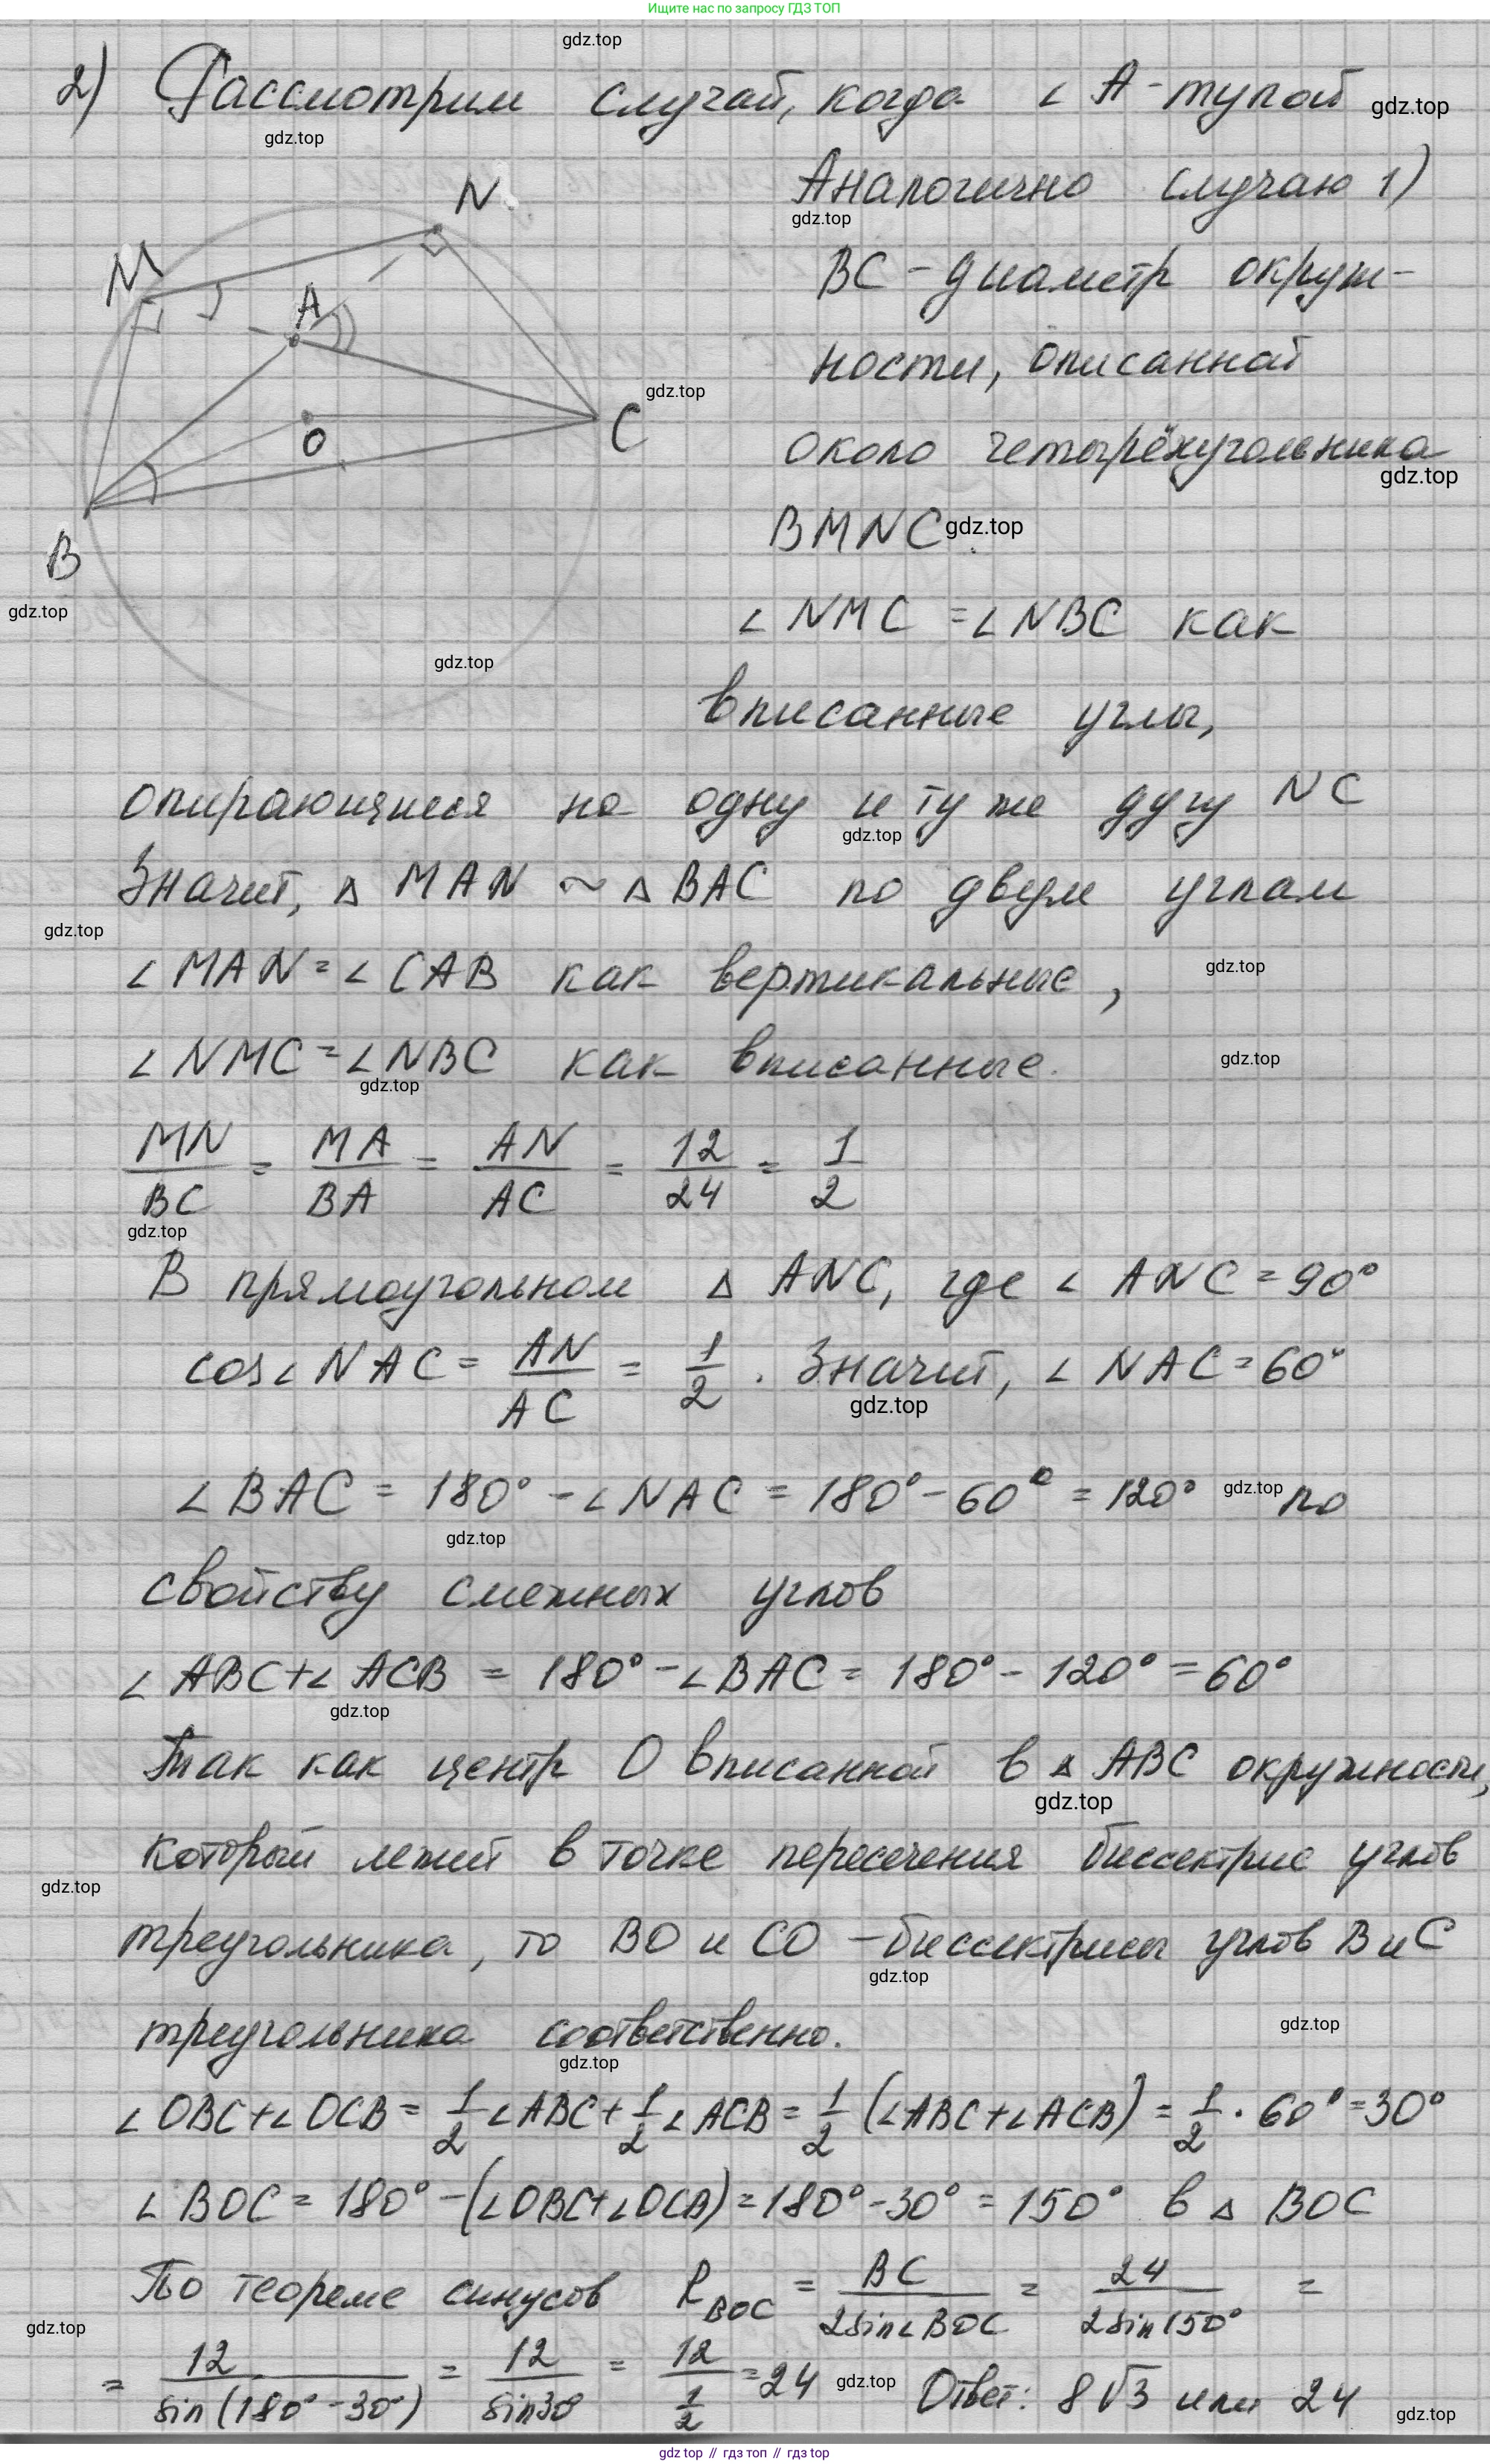 Ищите нас по запросу ГДЗ ТОП
gdz.top
2) Рассмотрим случай, когда ∠ A - тупой gdz.top
gdz.top
Аналогично случаю 1)
gdz.top
N
BC - диаметр окруж-
M
A
ности, описанной
gdz.top
O
C
около четырёхугольника
gdz.top
BMNC. gdz.top
B
gdz.top
∠ NMC = ∠ NBC как
gdz.top
вписанные углы,
опирающиеся на одну и ту же дугу NC
gdz.top
Значит, Δ MAN ~ Δ BAC по двум углам
gdz.top
∠ MAN = ∠ CAB как вертикальные,
gdz.top
∠ NMC = ∠ NBC как вписанные.
gdz.top
gdz.top
MN/BC = MA/BA = AN/AC = 12/24 = 1/2
gdz.top
В прямоугольном Δ ANC, где ∠ ANC = 90°
cos∠ NAC = AN/AC = 1/2. Значит, ∠ NAC = 60°
gdz.top
∠ BAC = 180° - ∠ NAC = 180° - 60° = 120° gdz.top по
gdz.top
свойству смежных углов
∠ ABC + ∠ ACB = 180° - ∠ BAC = 180° - 120° = 60°
gdz.top
Так как центр O вписанной в Δ ABC окружности,
gdz.top
который лежит в точке пересечения биссектрис углов
gdz.top
треугольника, то BO и CO - биссектрисы углов B и C
gdz.top
треугольника соответственно.
gdz.top
gdz.top
∠ OBC + ∠ OCB = 1/2 ∠ ABC + 1/2 ∠ ACB = 1/2 (∠ ABC + ∠ ACB) = 1/2 · 60° = 30°
∠ BOC = 180° - (∠ OBC + ∠ OCB) = 180° - 30° = 150° в Δ BOC
По теореме синусов R BOC = BC/2sin∠ BOC = 24/2sin150° =
gdz.top
= 12/sin(180° - 30°) = 12/sin30 = 12/(1/2) = 24 gdz.top Ответ: 8√3 или 24
gdz.top
gdz top // гдз топ // gdz top